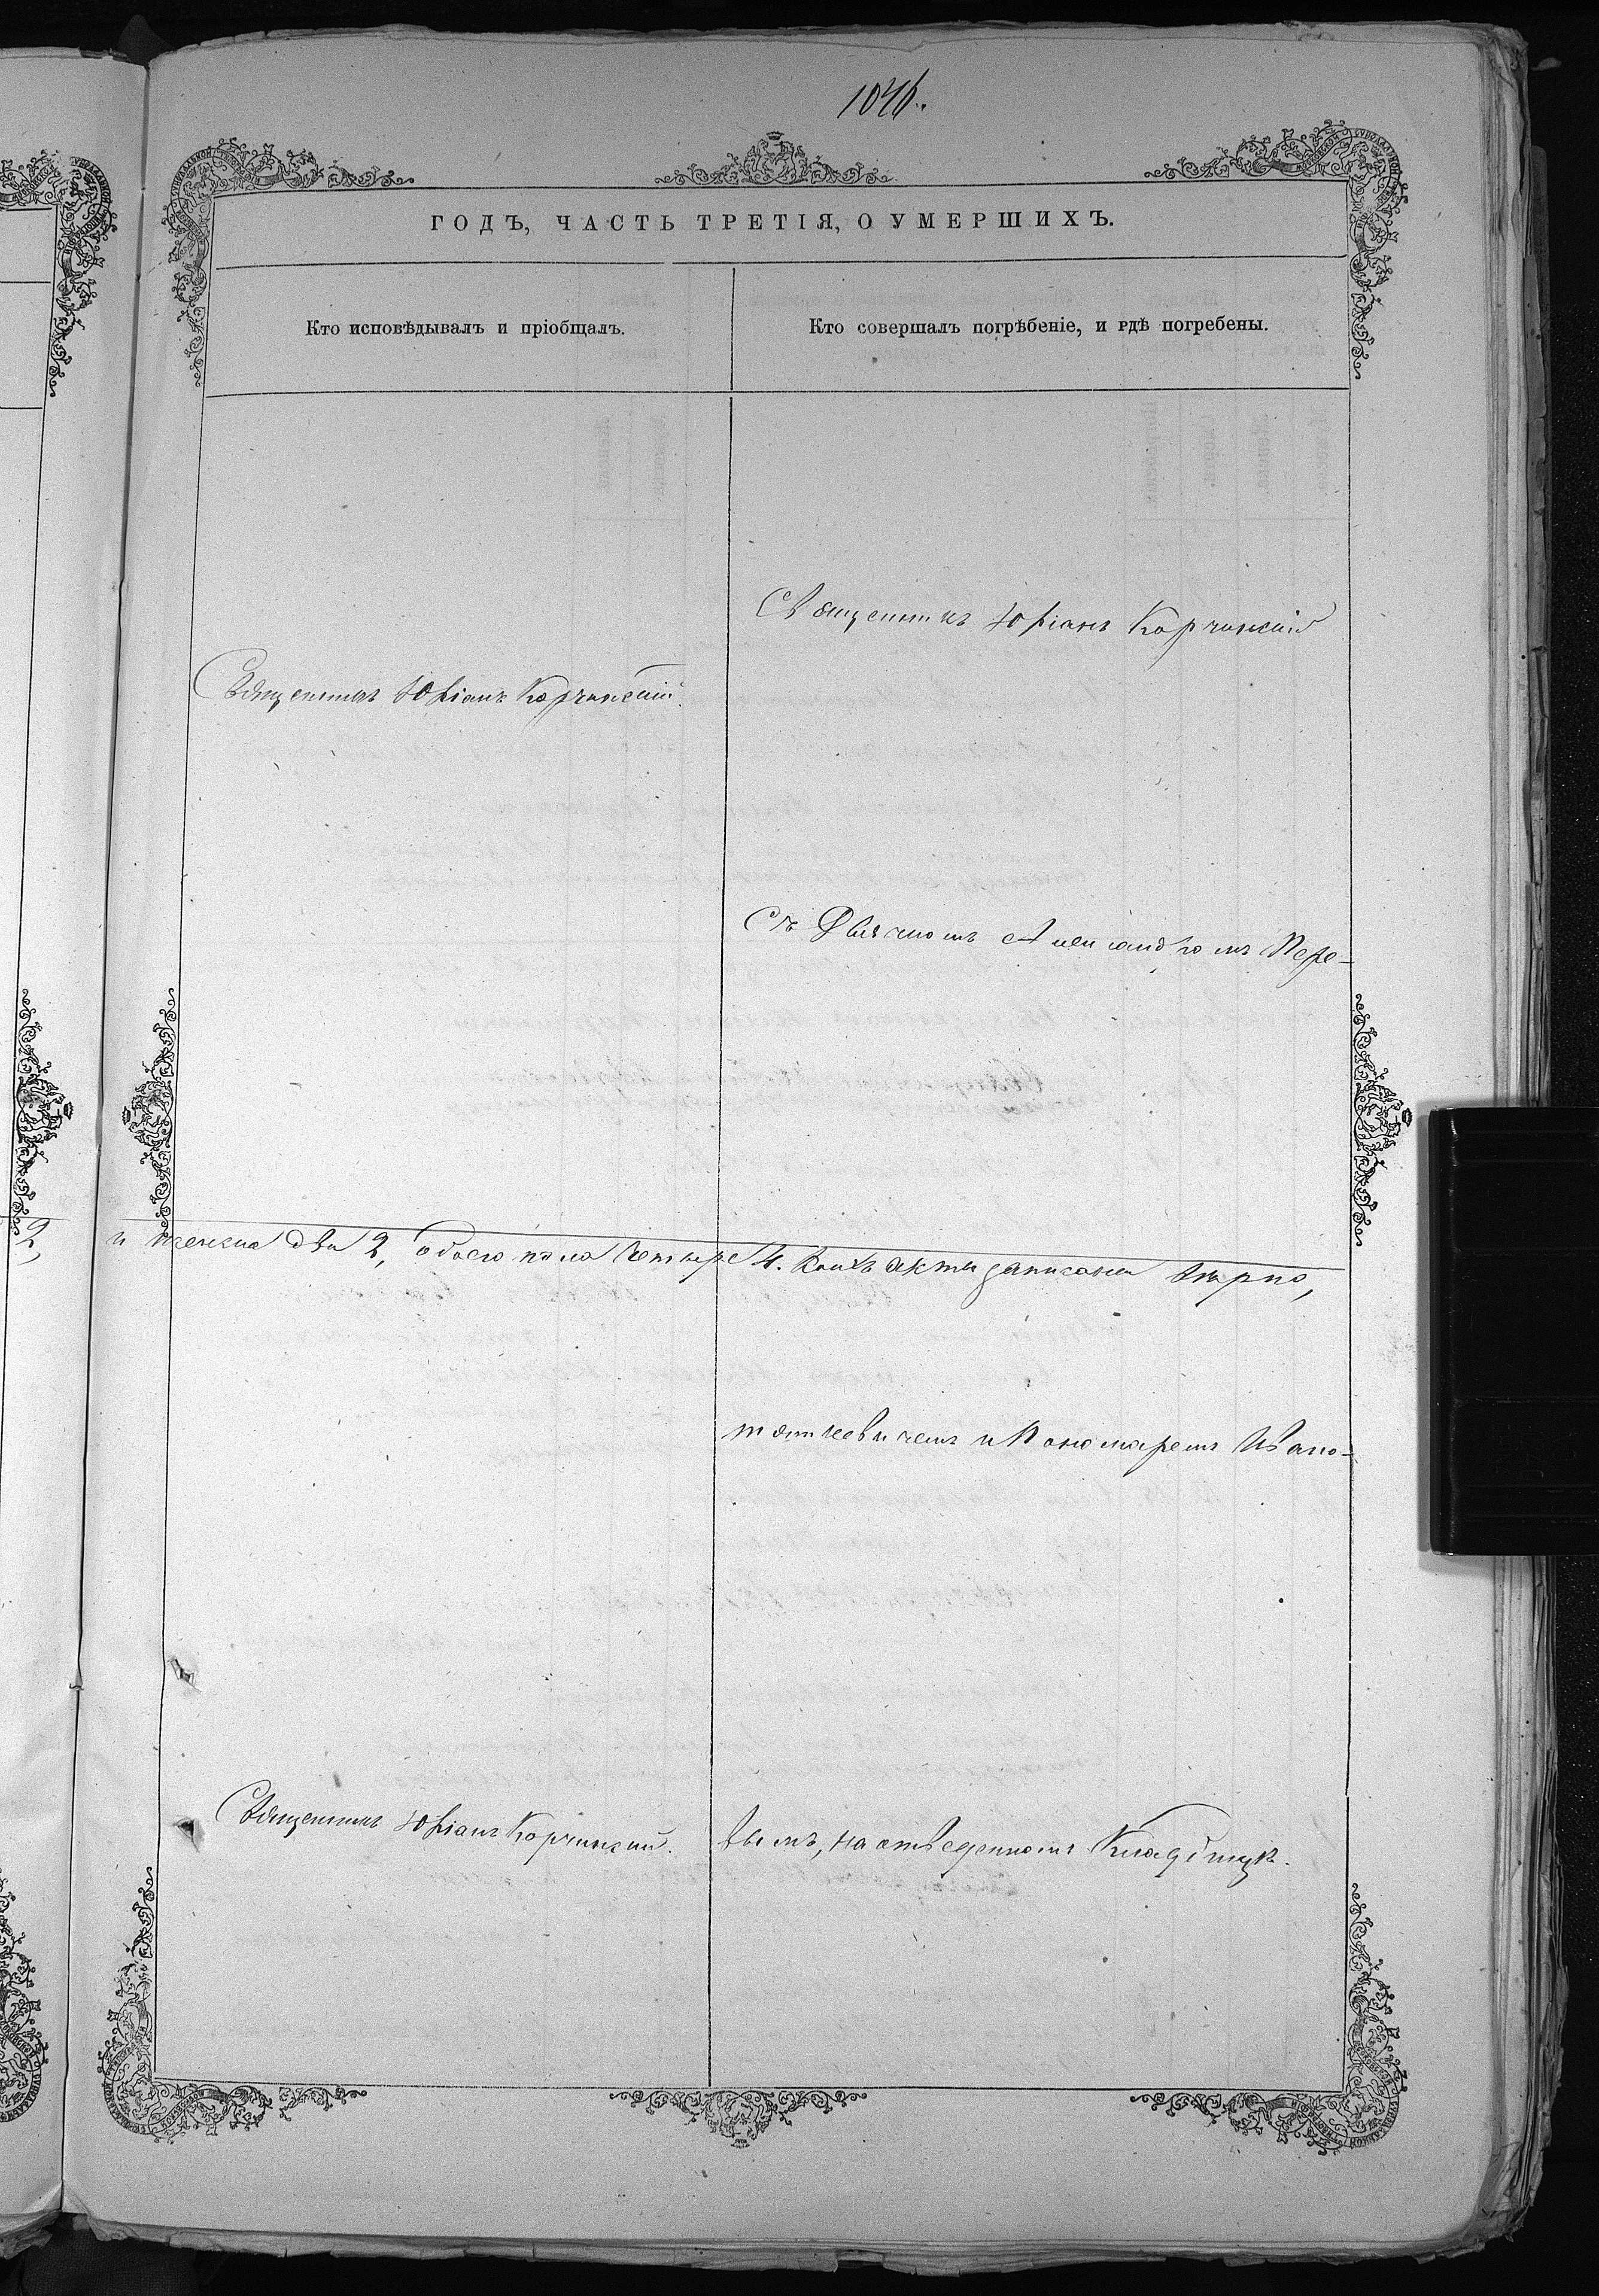 1046.
ГОДЪ, ЧАСТЬ ТРЕТІЯ, О УМЕРШИХЪ.
Кто исповѣдывалъ и пріобщалъ.
Кто совершалъ погрѣбеніе, и гдѣ погребены.
Священникъ Юліанъ Корчинскій
Священникъ Юліанъ Корчинскій.
Съ Дьячкомъ Александромъ Пере-
2,
и женска два 2, обоего пола Четыре 4. Коихъ акты записаны вѣрно,
тятковичемъ и Пономаремъ Ивано-
Священникъ Юліанъ Корчинскій.
вымъ, на отведенномъ Кладбищѣ.